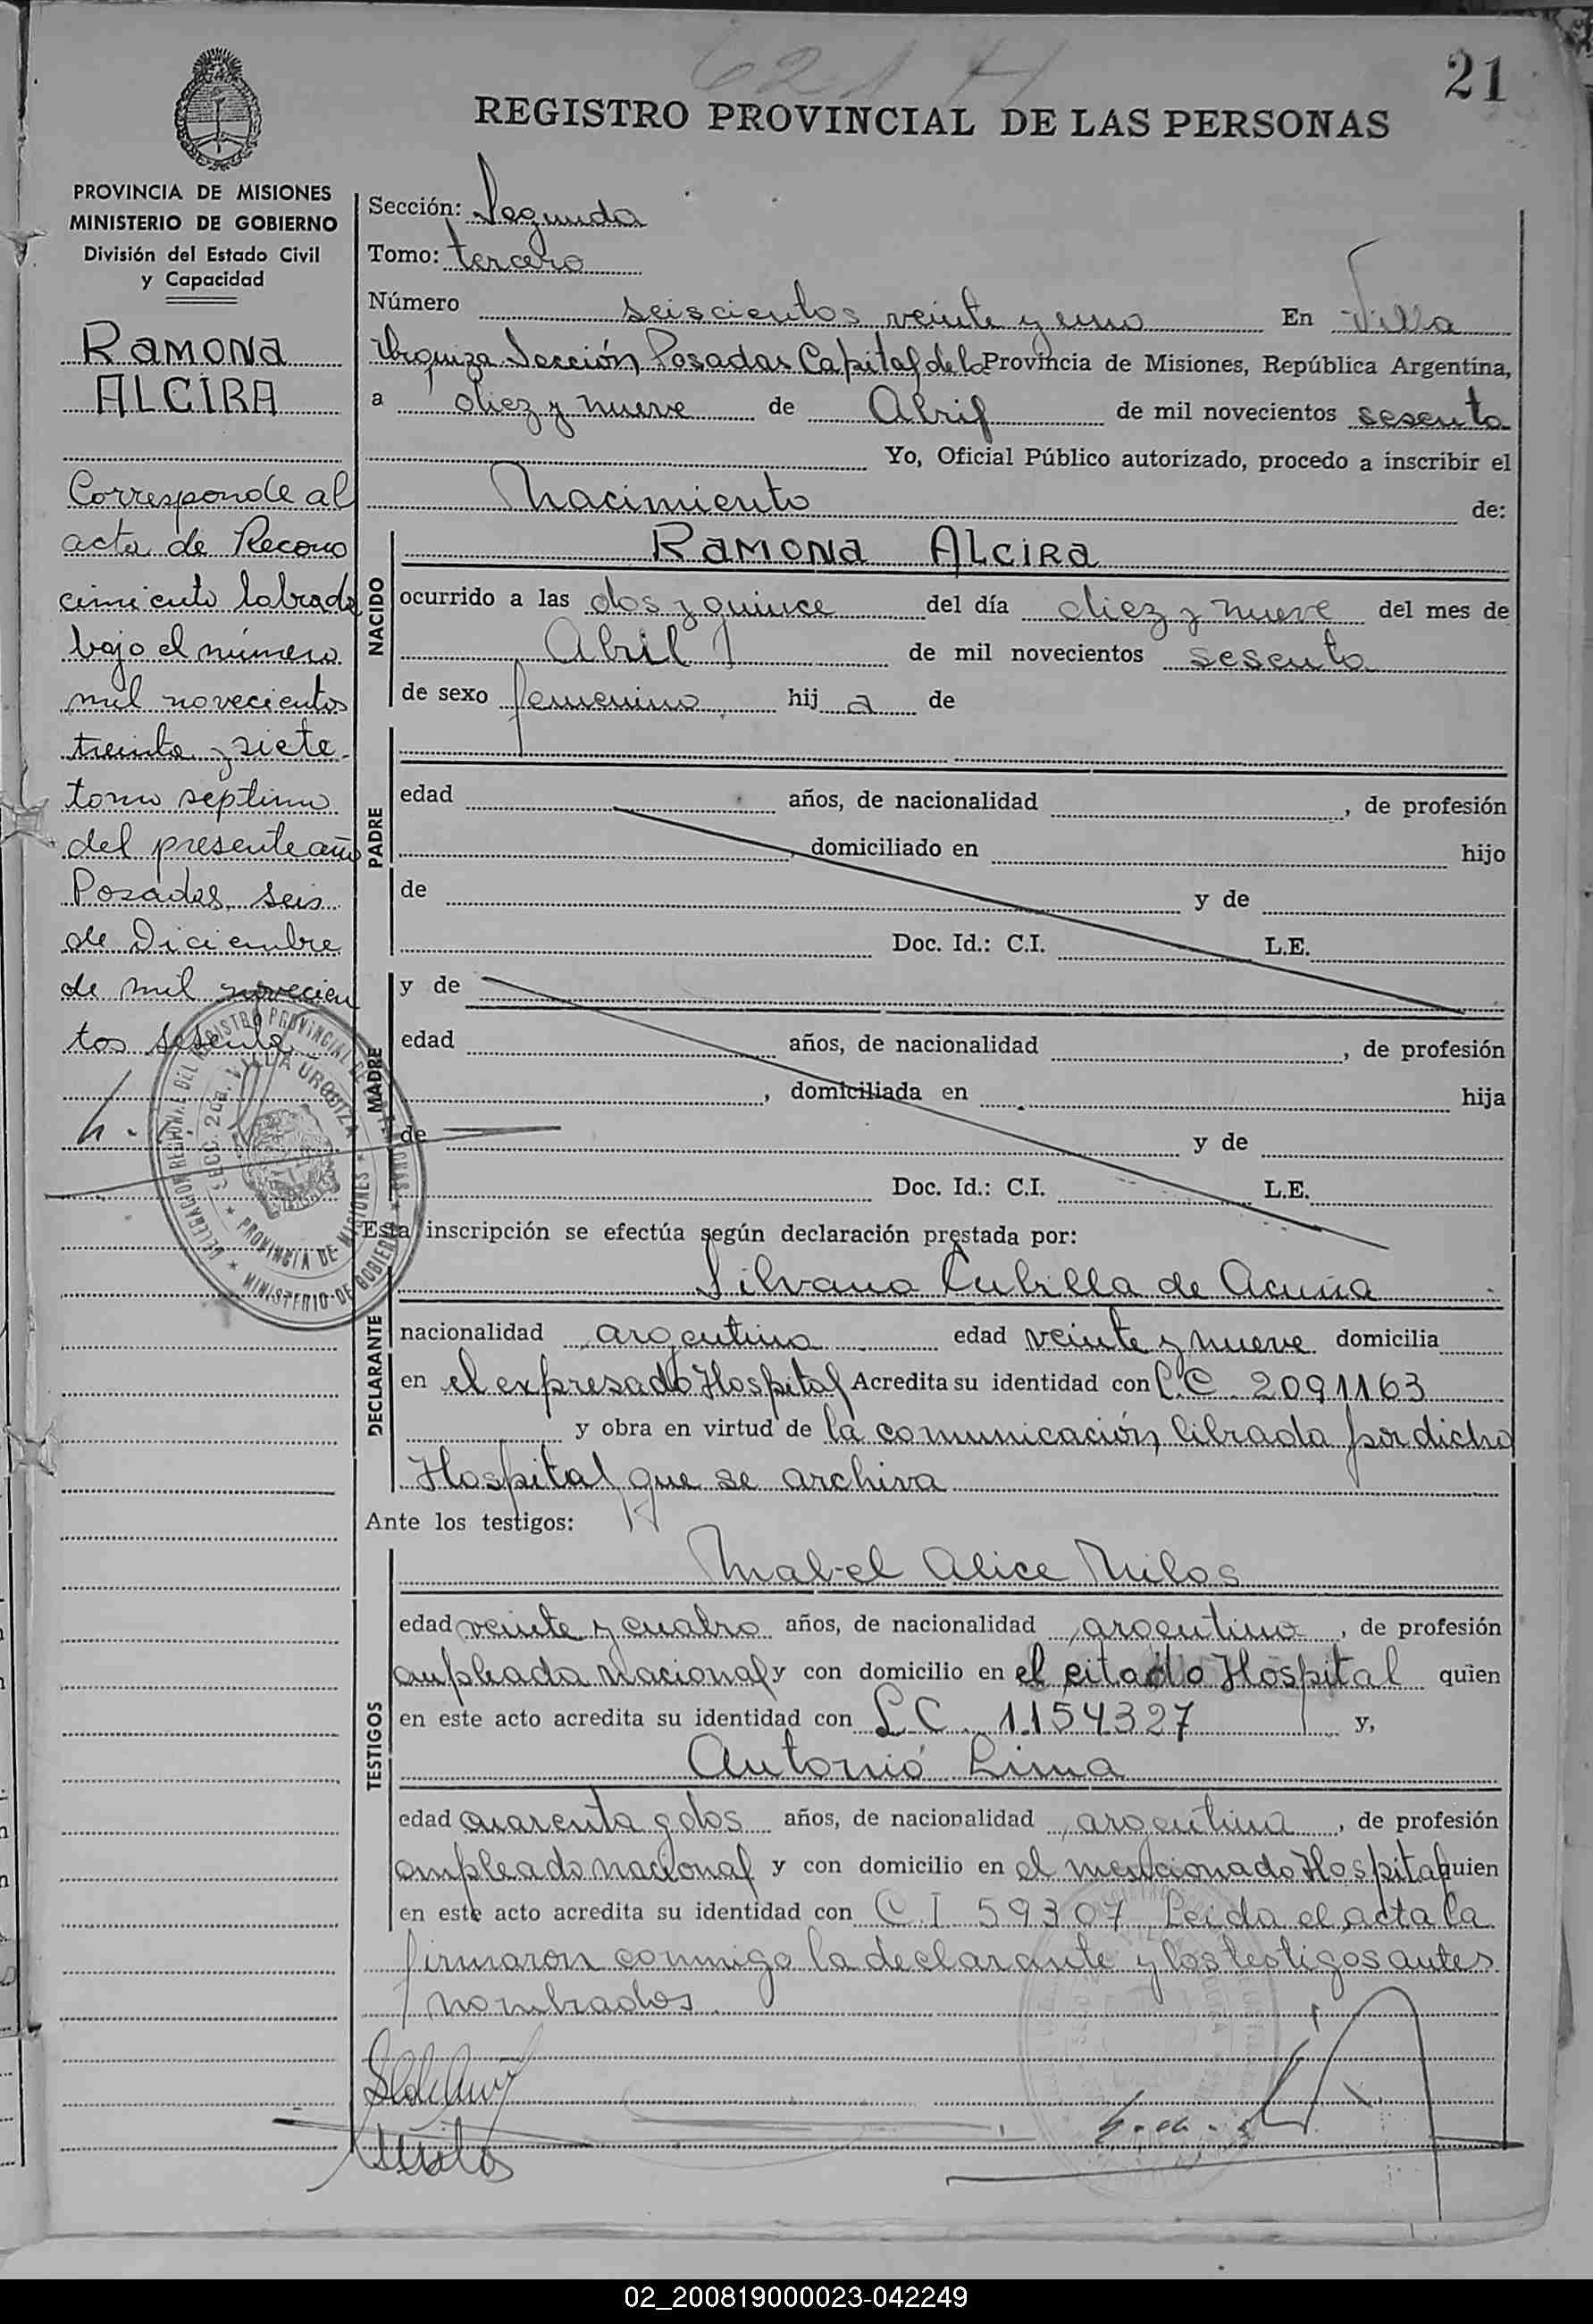 21
REGISTRO PROVINCIAL DE LAS PERSONAS
PROVINCIA DE MISIONES
MINISTERIO DE GOBIERNO
División del Estado Civil
y Capacidad
RAMONA
ALCIRA
Corresponde al
acta de Recono
cimiento labrada
bajo el número
mil novecientos
treinta y siete
tomo septimo
del presente año
Posadas, seis
de Diciembre
de mil novecien
tos sesenta
DELEGACION REGIONAL DEL REGISTRO PROVINCIAL DE LAS PERSONAS
SECC. 2da. VILLA URQUIZA
PROVINCIA DE MISIONES
MINISTERIO DE GOBIERNO
Sección: Segunda
Tomo: tercero
Número seiscientos veinte y uno En Villa
Urquiza Sección Posadas Capital de la Provincia de Misiones, República Argentina,
a diez y nueve de Abril de mil novecientos sesenta
Yo, Oficial Público autorizado, procedo a inscribir el
Nacimiento de:
NACIDO
RAMONA ALCIRA
ocurrido a las dos y quince del día diez y nueve del mes de
Abril de mil novecientos sesenta
de sexo femenino hij a de
PADRE
edad años, de nacionalidad , de profesión
, domiciliado en hijo
de y de
Doc. Id.: C.I. L.E.
MADRE
y de
edad años, de nacionalidad , de profesión
, domiciliada en hija
de y de
Doc. Id.: C.I. L.E.
Esta inscripción se efectúa según declaración prestada por:
DECLARANTE
Silvana Cubilla de Acuña
nacionalidad argentina edad veinte y nueve domicilia
en el expresado Hospital Acredita su identidad con L.C. 2091163
y obra en virtud de la comunicación librada por dicho
Hospital que se archiva
Ante los testigos:
TESTIGOS
Mabel Alice Milos
edad veinte y cuatro años, de nacionalidad argentina, de profesión
empleada nacional y con domicilio en el citado Hospital quien
en este acto acredita su identidad con L C 1154327 y,
Antonio Lima
edad cuarenta y dos años, de nacionalidad argentina, de profesión
empleado nacional y con domicilio en el mencionado Hospital quien
en este acto acredita su identidad con C.I 59307 Leida el acta la
firmaron conmigo la declarante y los testigos antes
nombrados
02_200819000023-042249